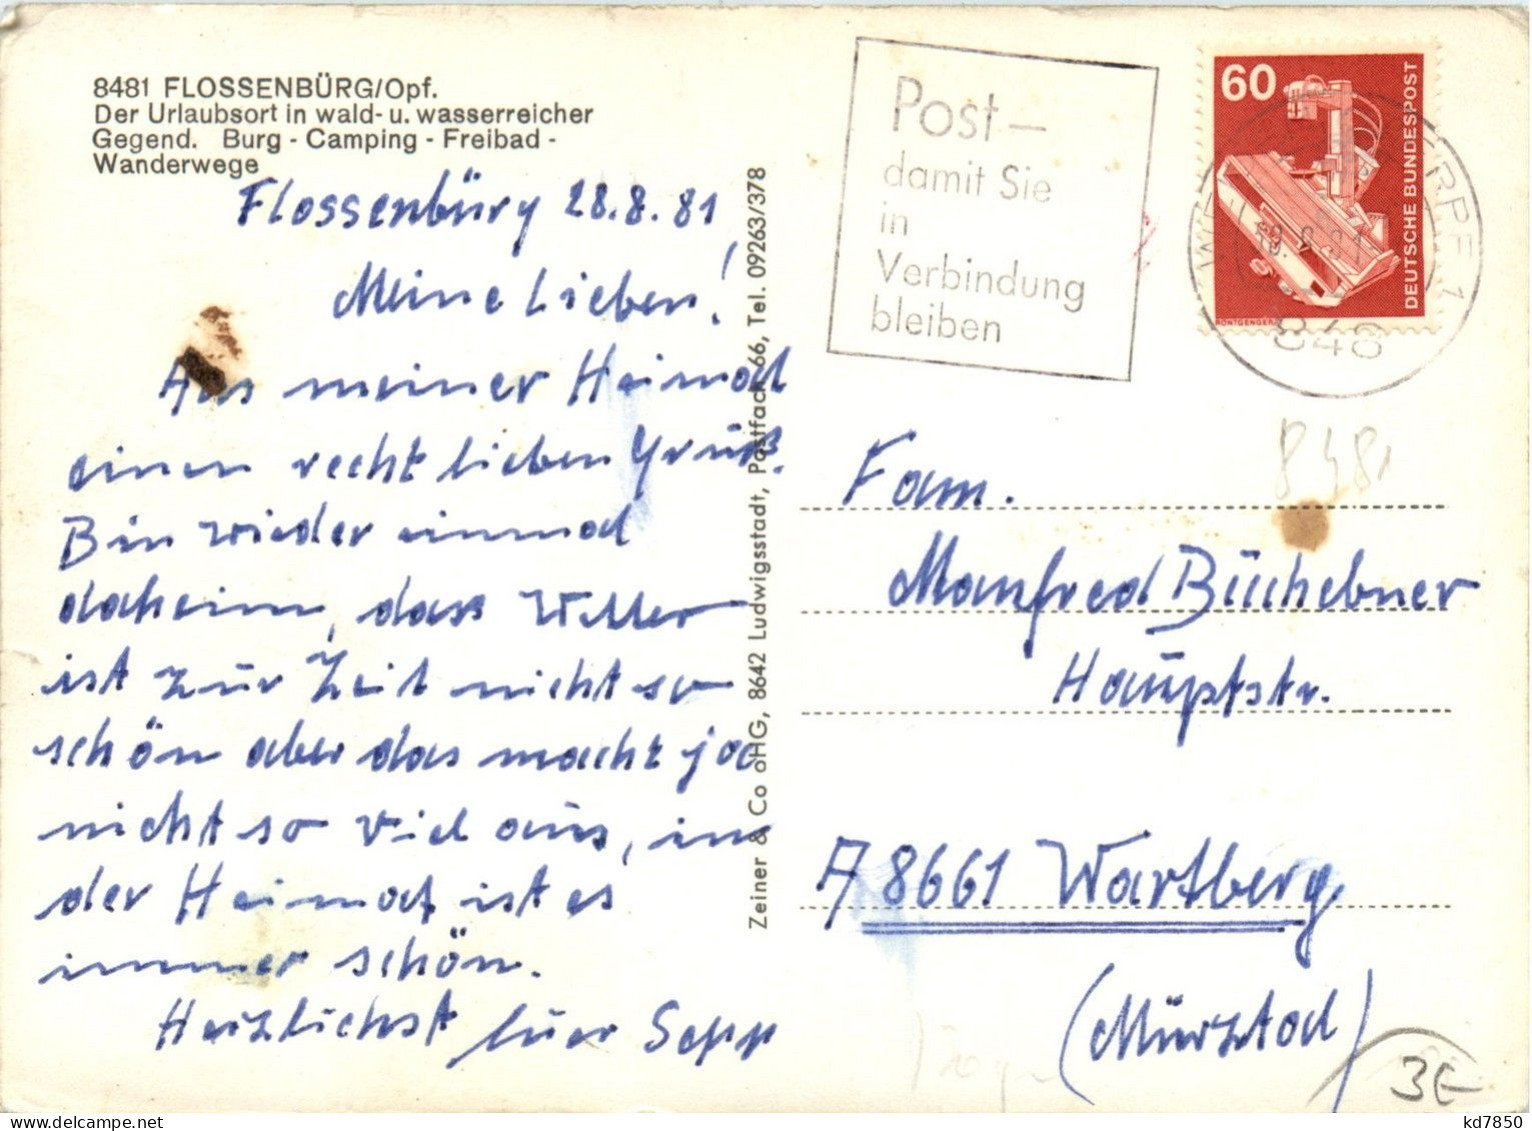 8481 FLOSSENBÜRG/Opf.
Der Urlaubsort in wald- u. wasserreicher
Gegend. Burg - Camping - Freibad -
Wanderwege
Flossenbürg 28.8.81
Meine Lieben!
Aus meiner Heimat
einen recht lieben Gruß.
Bin wieder einmal
daheim, das Wetter
ist zur Zeit nicht so
schön aber das macht ja
nicht so viel aus, in
der Heimat ist es
immer schön.
Herzlichst Euer Sepp
Zeiner & Co oHG, 8642 Ludwigsstadt, Postfach 66, Tel. 09263/378
Post –
damit Sie
in
Verbindung
bleiben
60
DEUTSCHE BUNDESPOST
RÖNTGENGERÄT
848
8481
Fam.
Manfred Büchebner
Hauptstr.
A 8661 Wartberg
(Mürztal)
3€
kd7850